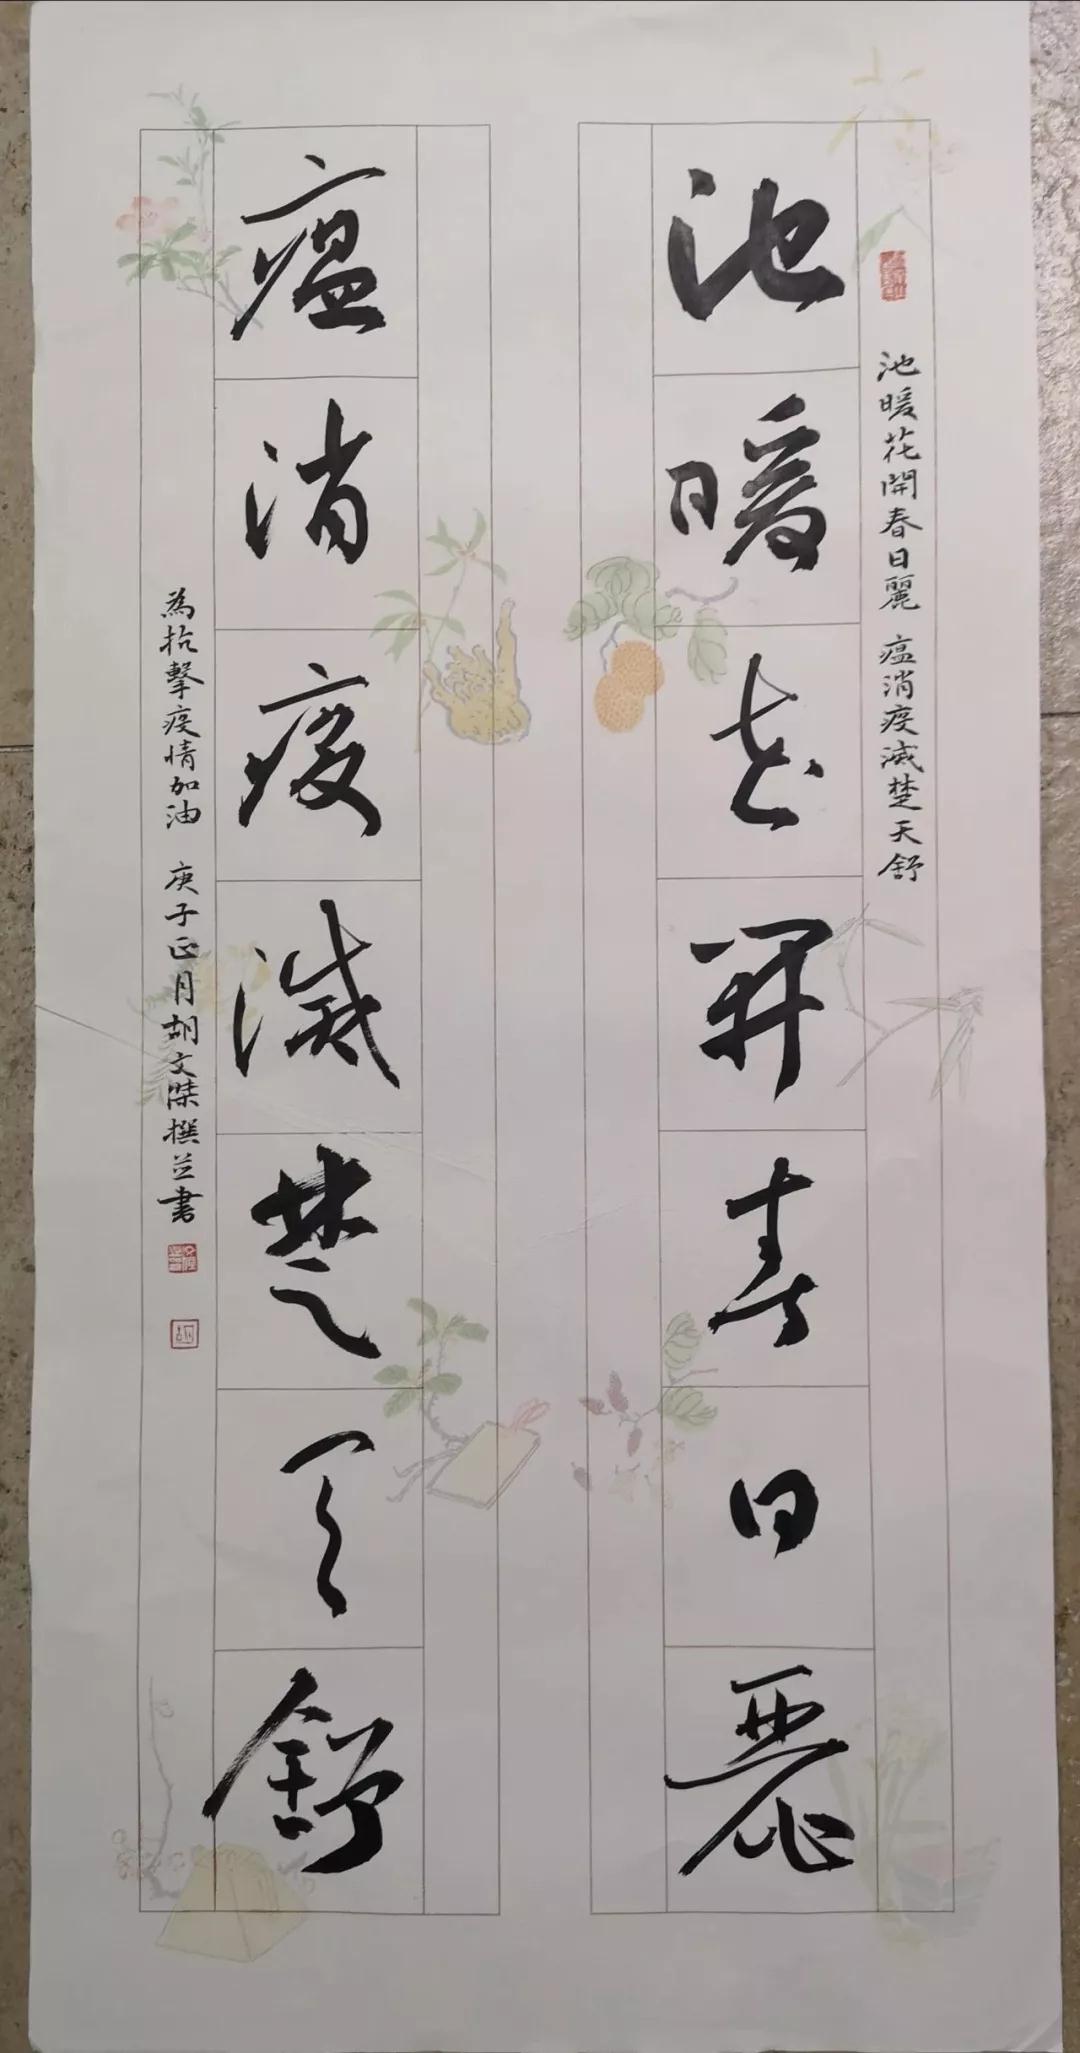 池暖花開春日麗
瘟消疫滅楚天舒
池暖花開春日麗 瘟消疫滅楚天舒
為抗擊疫情加油 庚子正月胡文傑撰並書